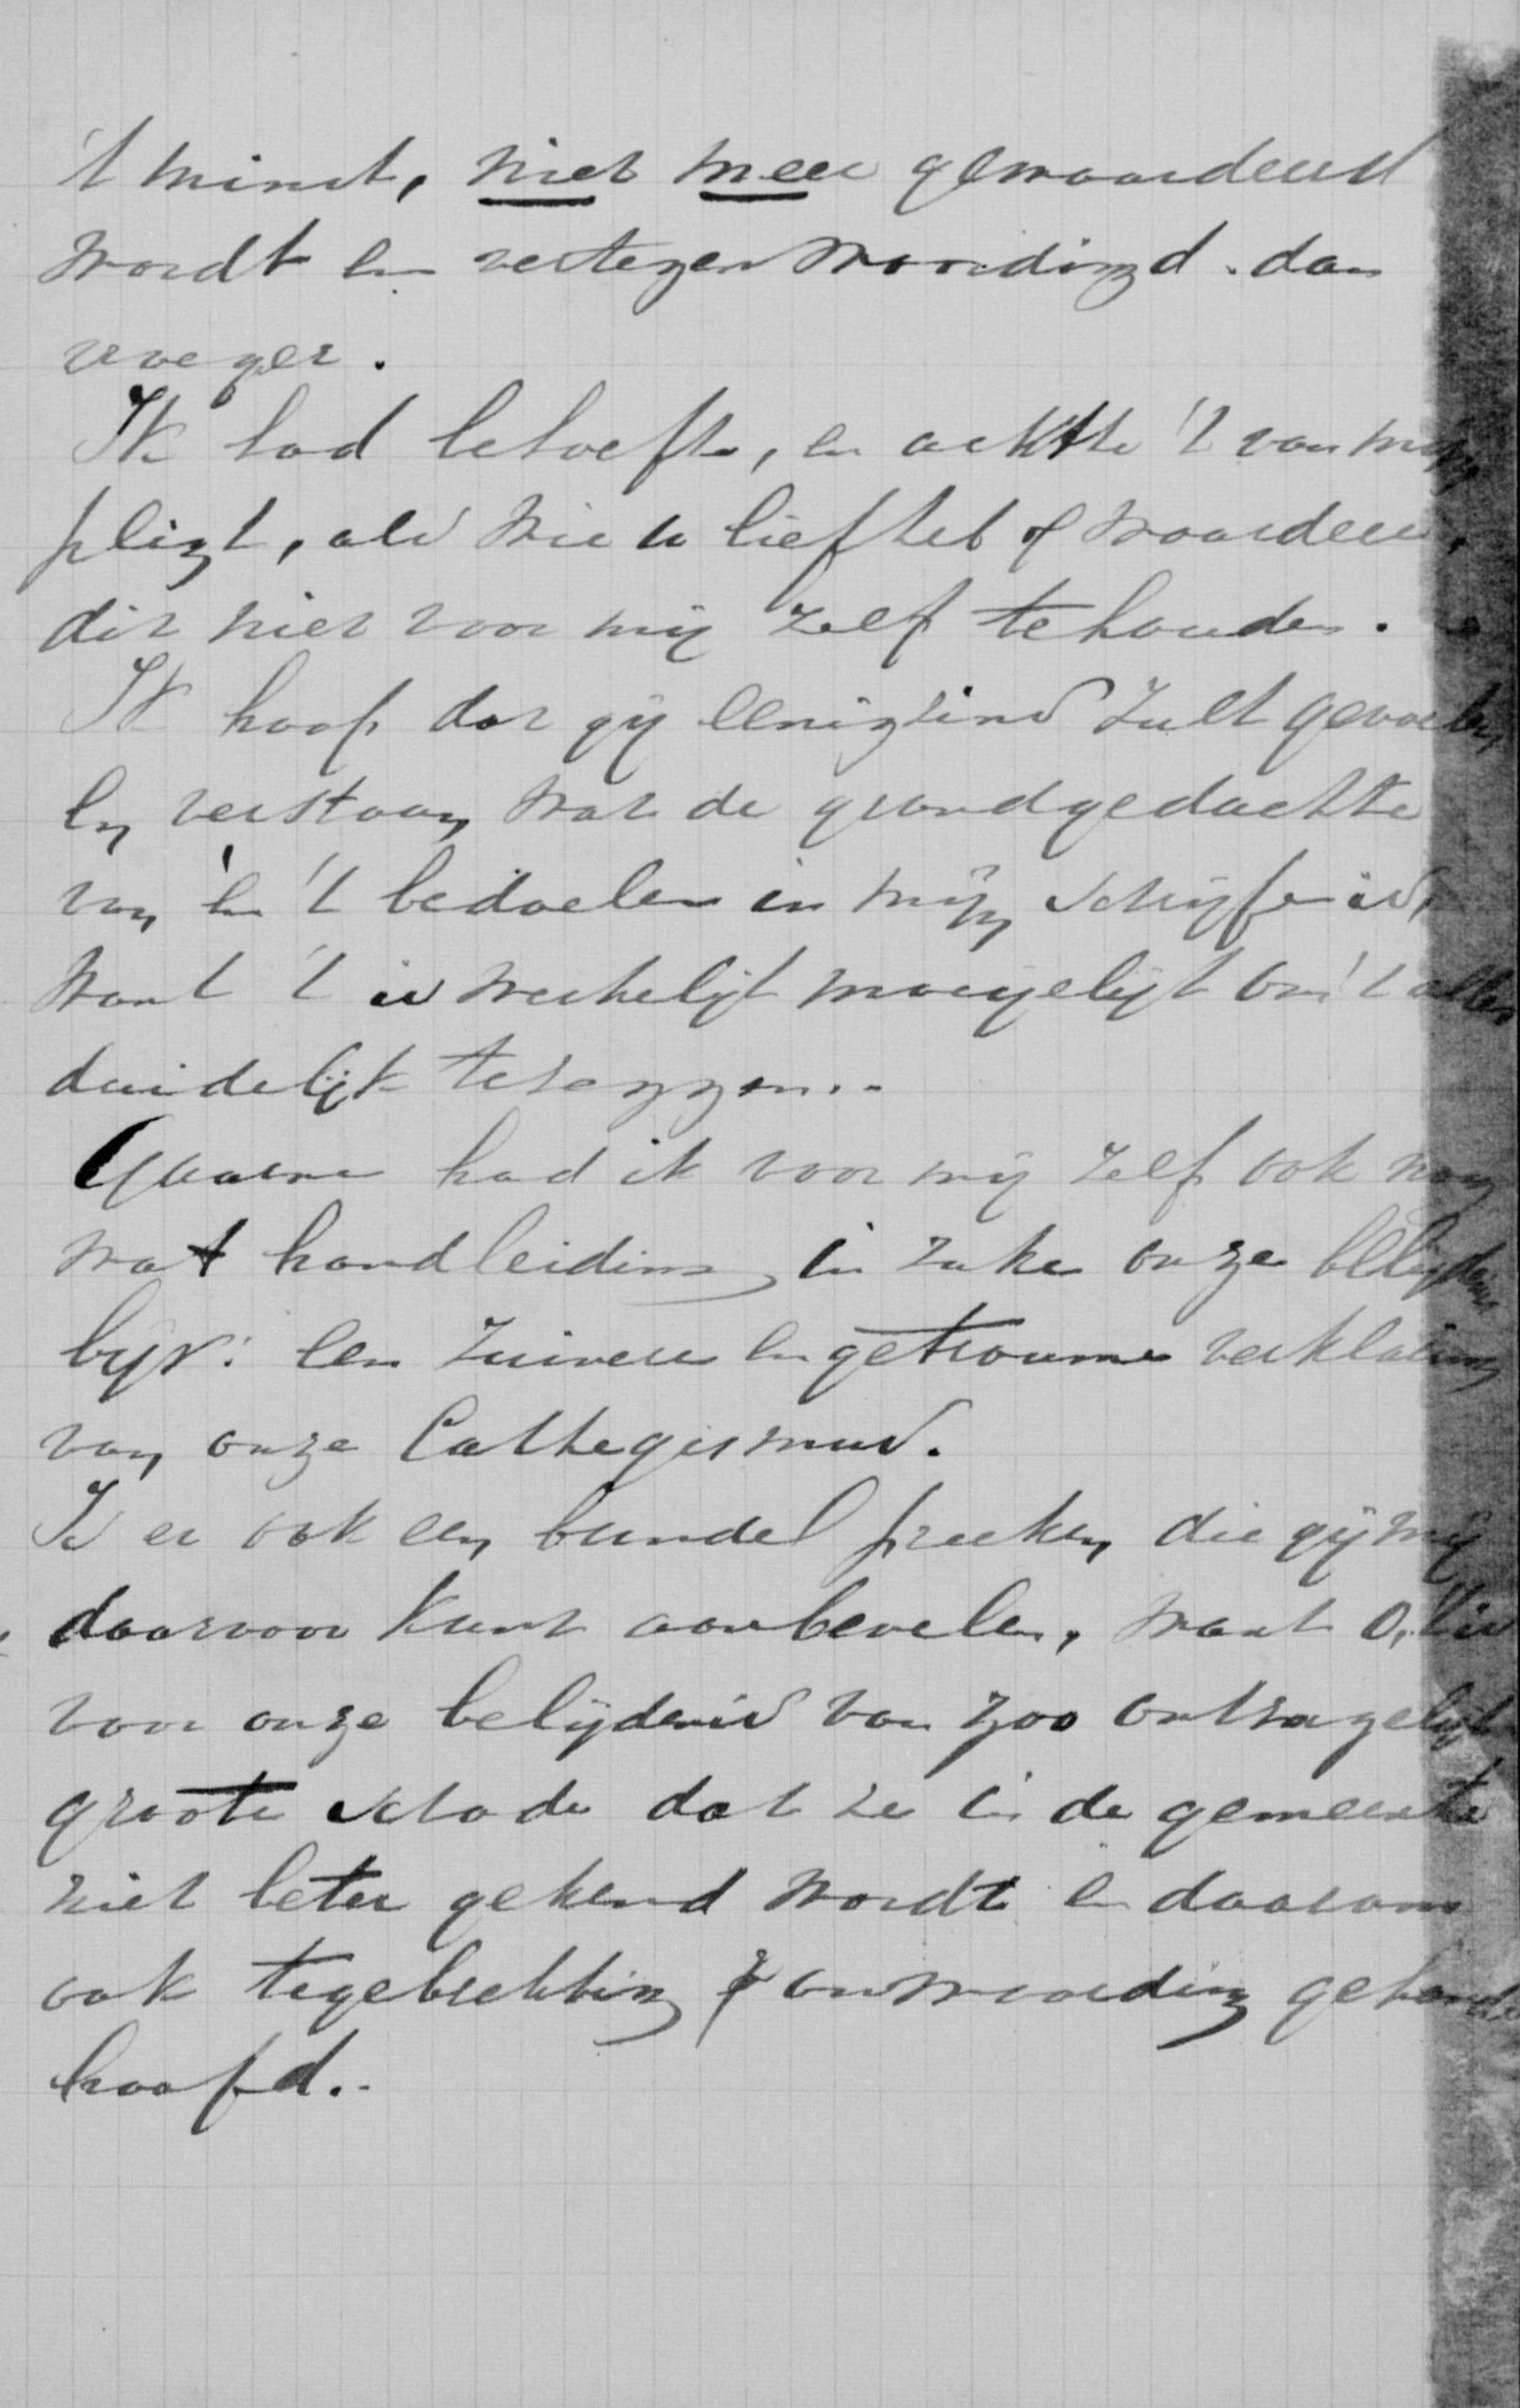 't minst, niet meer gewaardeerd
wordt en vertegenwoordigd. dan
vroeger.
Ik had behoefte, en achtte 't van mijn
pligt, als wie u liefheb of waardeer,
dit niet voor mij zelf te houden.
Ik hoop dat gij eenigzins zult gevoelen
en verstaan wat de grondgedachte
van en 't bedoelen in mijn schrijfen is,
want 't is werkelijk moeijelijk om 't alles
duidelijk te zeggen..
Gaarne had ik voor mij zelf ook nog
wat handleiding in zake onze belijdenis
bijv: een zuivere en getrouwe verklaring
van onze Cathegismus.
Is er ook een bundel preeken die gij mij
daarvoor kunt aanbevelen, want o, 't is
voor onze belijdenis van zoo ontzagelijk
groote schade dat ze in de gemeente
niet beter gekend wordt en daarom
ook
hoofd..